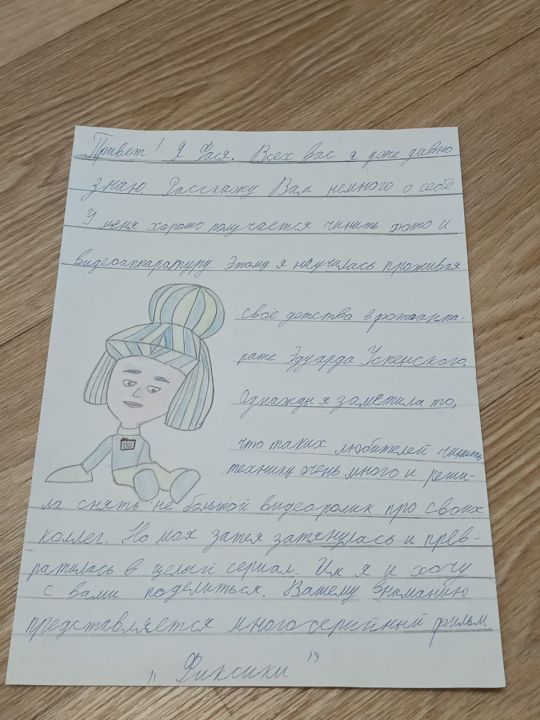 Привет! Я Фася. Всех вас я уже давно
знаю. Расскажу Вам немного о себе
У меня хорошо получается чинить фото и
видеоаппаратуру. Этому я научилась проживая
своё детства в фотоаппа-
рате Эдуарда Успенского.
Однажды я заметила то,
что таких любителей чинить
технику очень много и реши-
ла снять не большой видеоролик про своих
коллег. Но моя затея затянулась и прев-
ратилась в целый сериал. Им я и хочу
с вами поделиться. Вашему вниманию
представляется многосерийный фильм
„Фиксики"